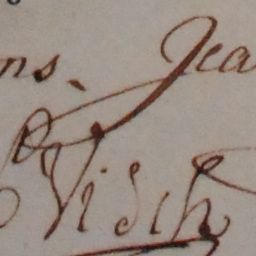 ns. Jea
Visch